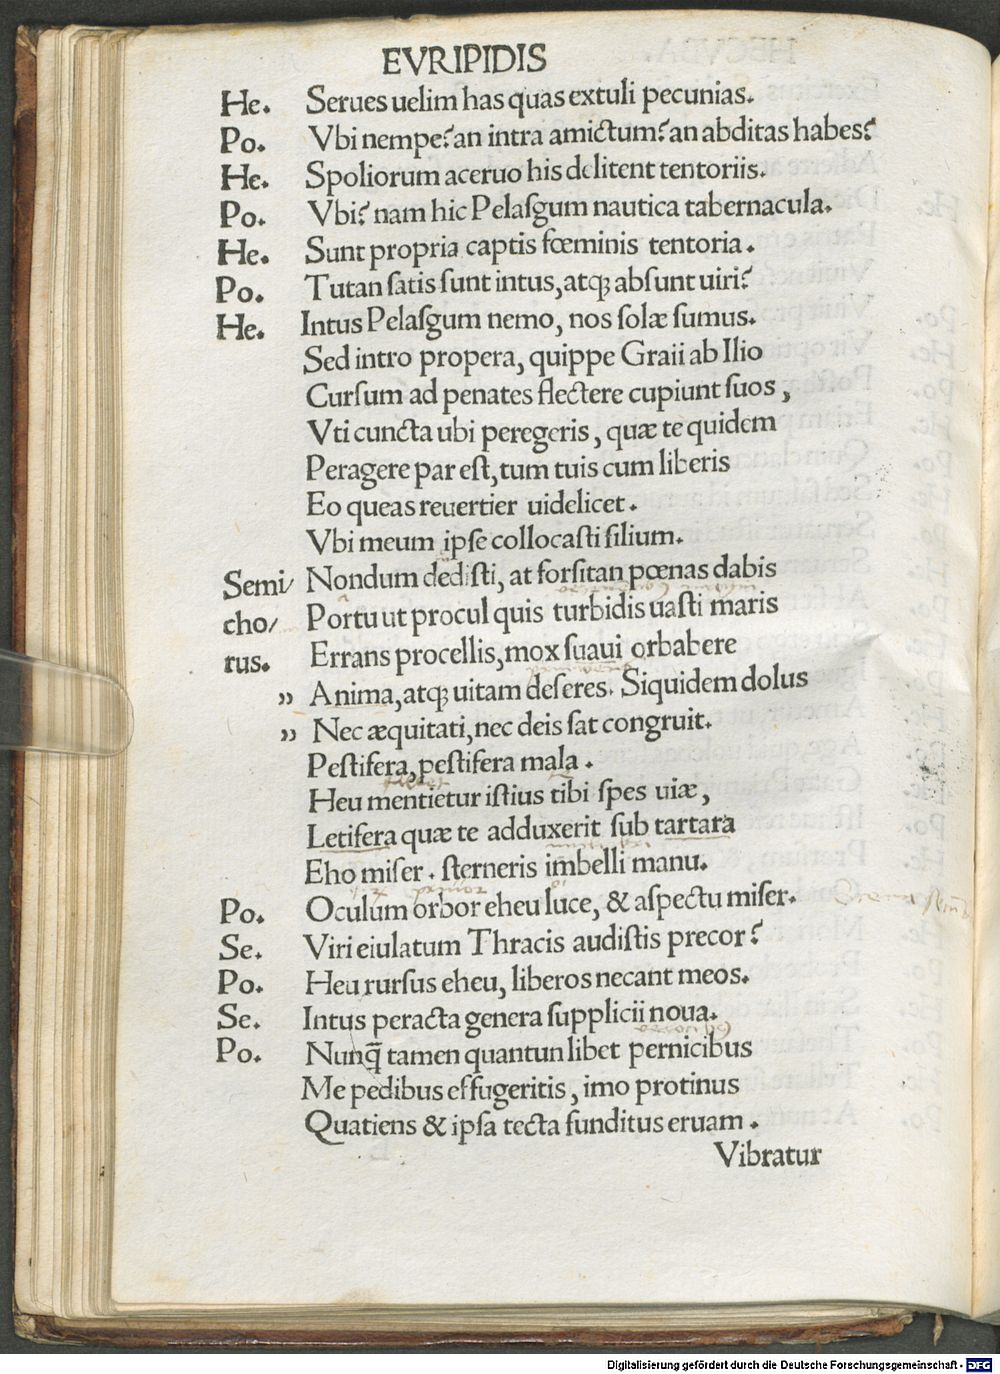 EVRIPIDIS
He. Serues uelim has quas extuli pecunias.
Po. Vbi nempe? an intra amictum? an abditas habes?
He. Spoliorum aceruo his delitent tentoriis.
Po. Vbi? nam hic Pelaſgum nautica tabernacula.
He. Sunt propria captis fœminis tentoria.
Po. Tutan ſatis ſunt intus, atqꝫ abſunt uiri?
He. Intus Pelaſgum nemo, nos ſolæ ſumus.
Sed intro propera, quippe Graii ab Ilio
Curſum ad penates flectere cupiunt ſuos,
Vti cuncta ubi peregeris, quæ te quidem
Peragere par eſt, tum tuis cum liberis
Eo queas reuertier uidelicet.
Vbi meum ipſe collocaſti filium.
Semi/ Nondum dediſti, at forſitan pœnas dabis
cho/ Portu ut procul quis turbidis uaſti maris
rus. Errans procellis, mox ſuaui orbabere
„ Anima, atqꝫ uitam deſeres. Siquidem dolus
„ Nec æquitati, nec deis ſat congruit.
Peſtifera, peſtifera mala.
Heu mentietur iſtius tibi ſpes uiæ,
Letifera quæ te adduxerit ſub tartara
Eho miſer. ſterneris imbelli manu.
Po. Oculum orbor eheu luce, & aſpectu miſer.
Se. Viri eiulatum Thracis audiſtis precor?
Po. Heu rurſus eheu, liberos necant meos.
Se. Intus peracta genera ſupplicii noua.
Po. Nunq̃ tamen quantun libet pernicibus
Me pedibus effugeritis, imo protinus
Quatiens & ipſa tecta funditus eruam.
Vibratur
Digitalisierung gefördert durch die Deutsche Forschungsgemeinschaft - DFG